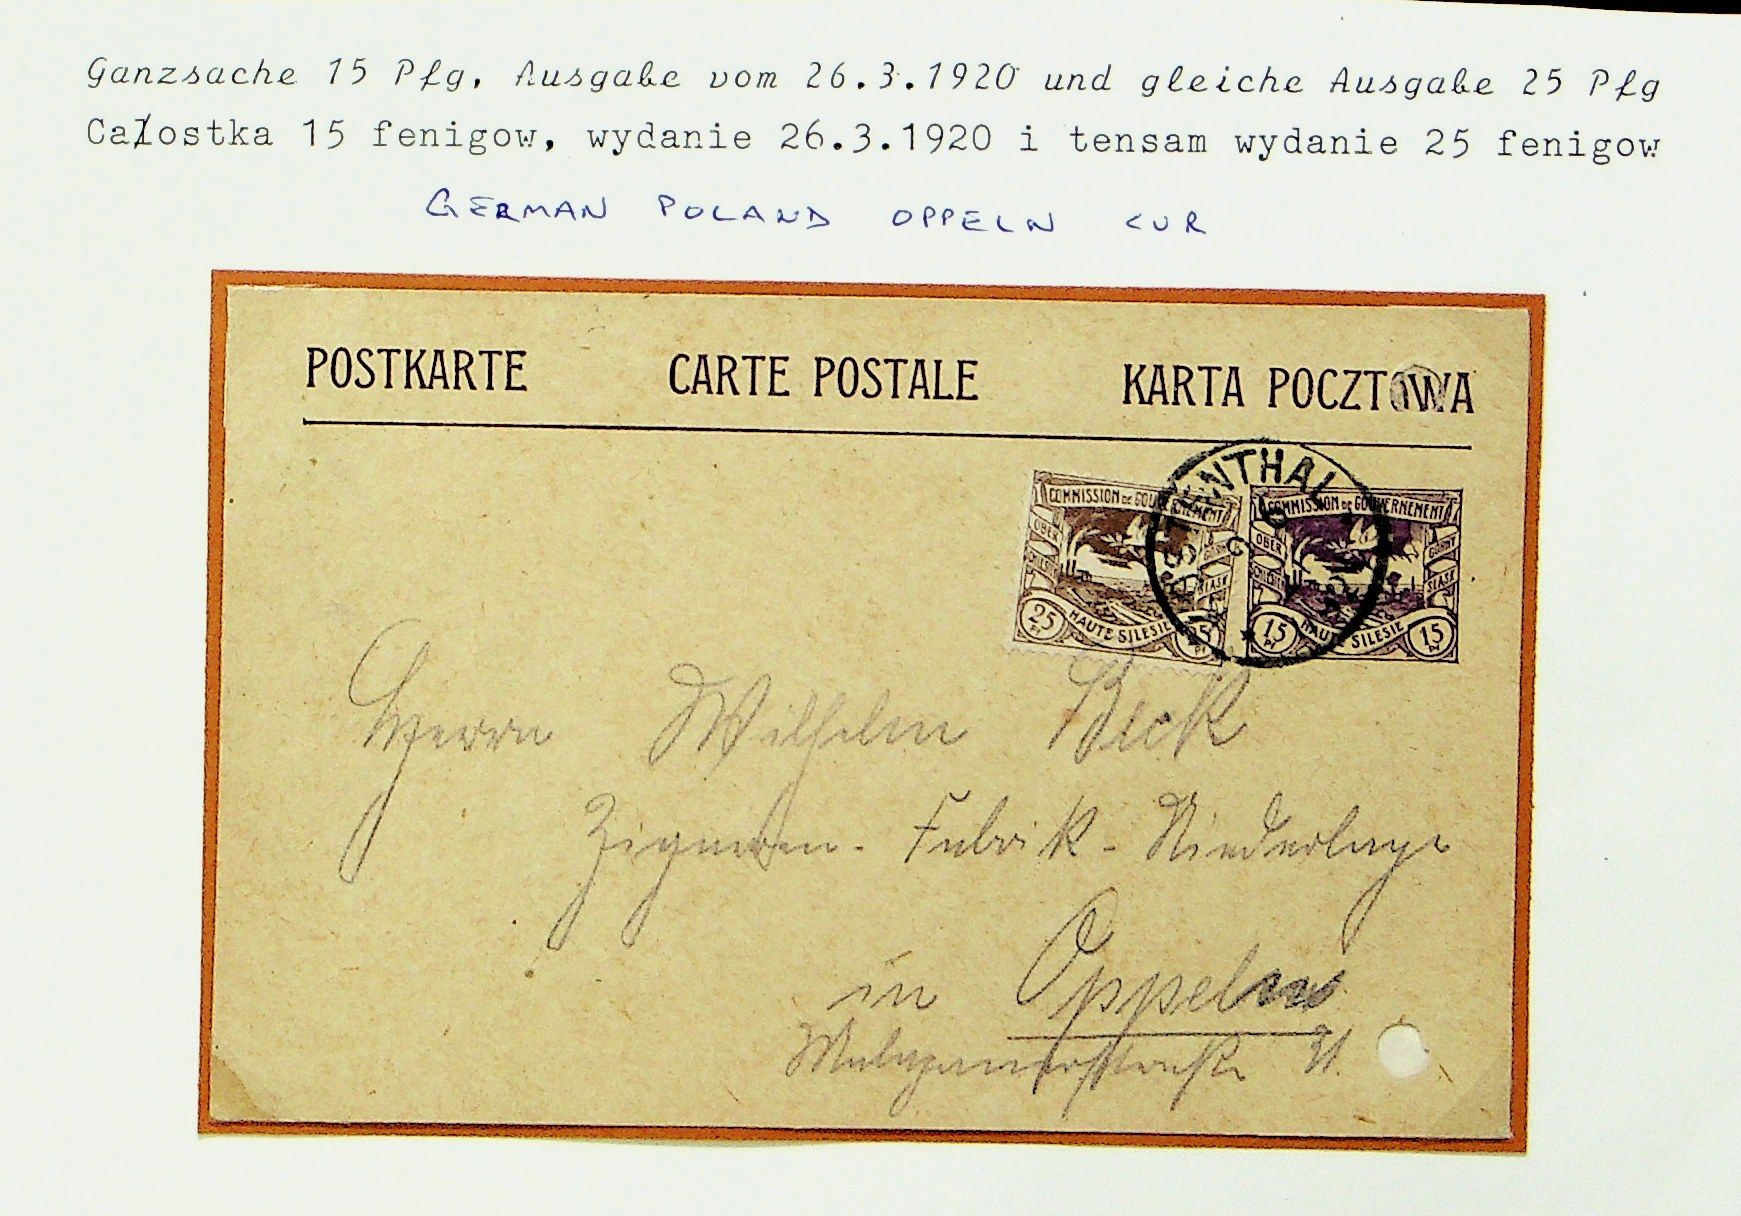 Ganzsache 15 Pfg, Ausgabe vom 26.3.1920 und gleiche Ausgabe 25 Pfg
Całostka 15 fenigow, wydanie 26.3.1920 i tensam wydanie 25 fenigow
GERMAN POLAND OPPELN CUR
POSTKARTE CARTE POSTALE KARTA POCZTOWA
COMMISSION DE GOUVERNEMENT
OBER SCHLESIEN GORNY SLASK
HAUTE SILESIE
25 PF 25 PF
COMMISSION DE GOUVERNEMENT
OBER SCHLESIEN GORNY SLASK
HAUTE SILESIE
15 PF 15 PF
ENTHAL
Herrn Wilhelm Beck
Zigarren-Fabrik-Niederlage
in Oppeln
31.